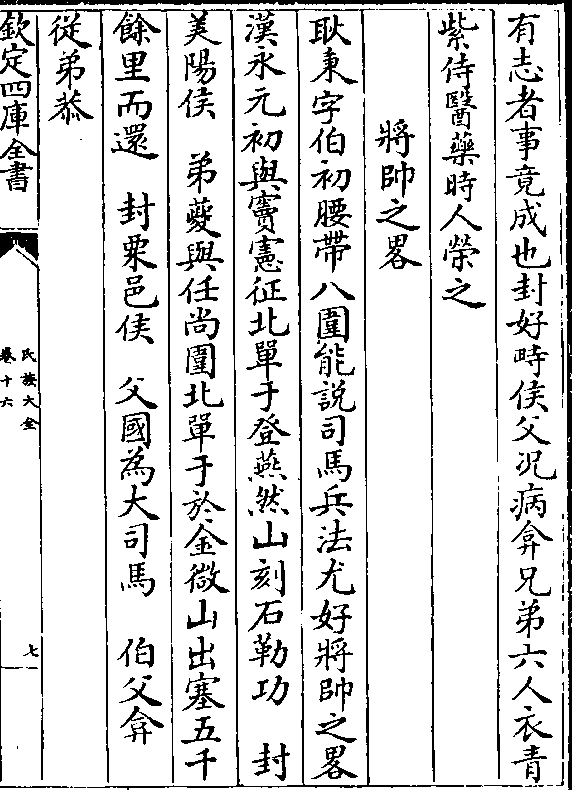 有志者事竟成也封好畤侯父况病弇兄弟六人衣青
紫侍醫藥時人榮之
將帥之畧
耿秉字伯初腰帶八圍能說司馬兵法尤好將帥之畧
漢永元初與竇憲征北單于登燕然山刻石勒功 封
美陽侯 弟夔與任尚圍北單于於金微山出塞五千
餘里而還 封粟邑侯 父國為大司馬 伯父弇
從弟恭
欽定四庫全書
氏族大全
卷十六
七